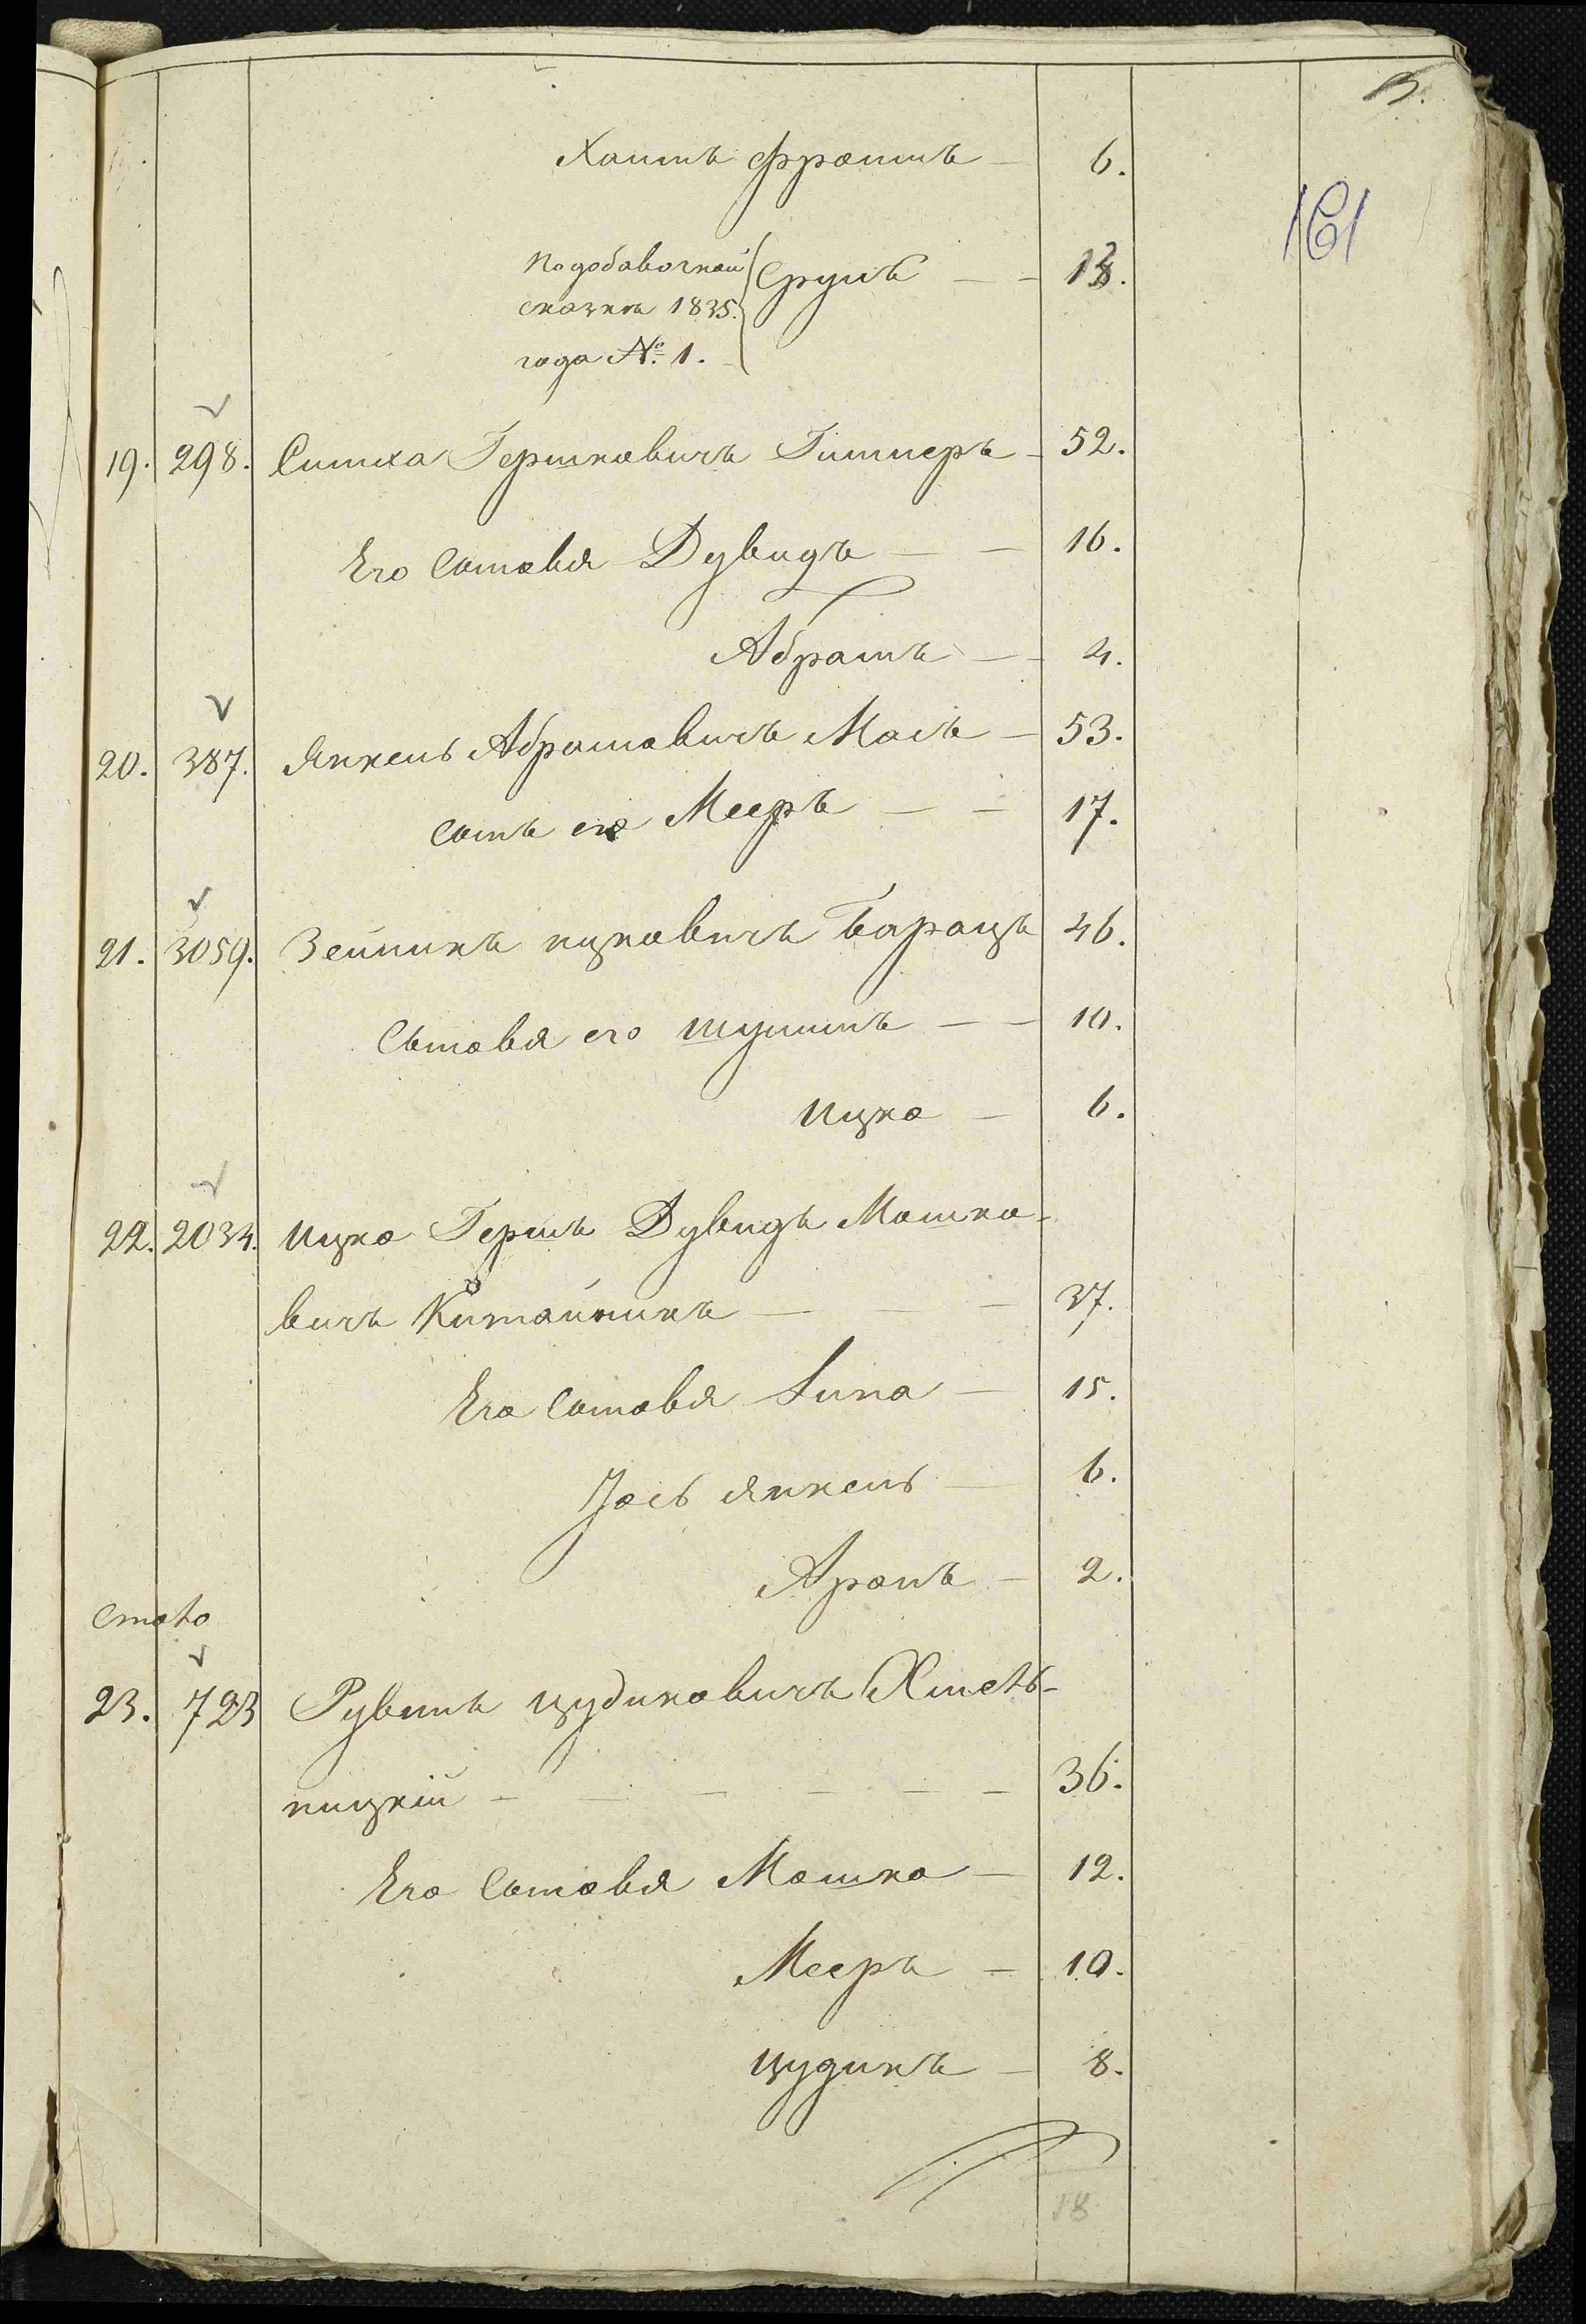 161
Хаимъ Фроимъ — 6.
По добавочной
сказкѣ 1835.
года №. 1.
Сруль — — 13.
19. 298. Симха Гершковичъ Гиммеръ — 52.
Его Сыновья Дувидъ — — 16.
Абрамъ — — 4.
20. 387. Янкель Абрамовичъ Маль — 53.
Сынъ его Мееръ — — 17.
21. 3059. Зейликъ ицковичъ Барацъ 46.
Сыновья его шулимъ — — 10.
ицко — 6.
22. 2034. ицко Гершъ Дувидъ Мошко-
вичъ Китайникъ — — — 37.
Его Сыновья Липа — 15.
Іось Янкель — 6.
Аронъ — 2.
23. 723 Рувинъ цудиковичъ Хмель-
ницкій — — — — — — 36.
Его Сыновья Мошко — 12.
Мееръ — 10.
цудикъ — 8.
18